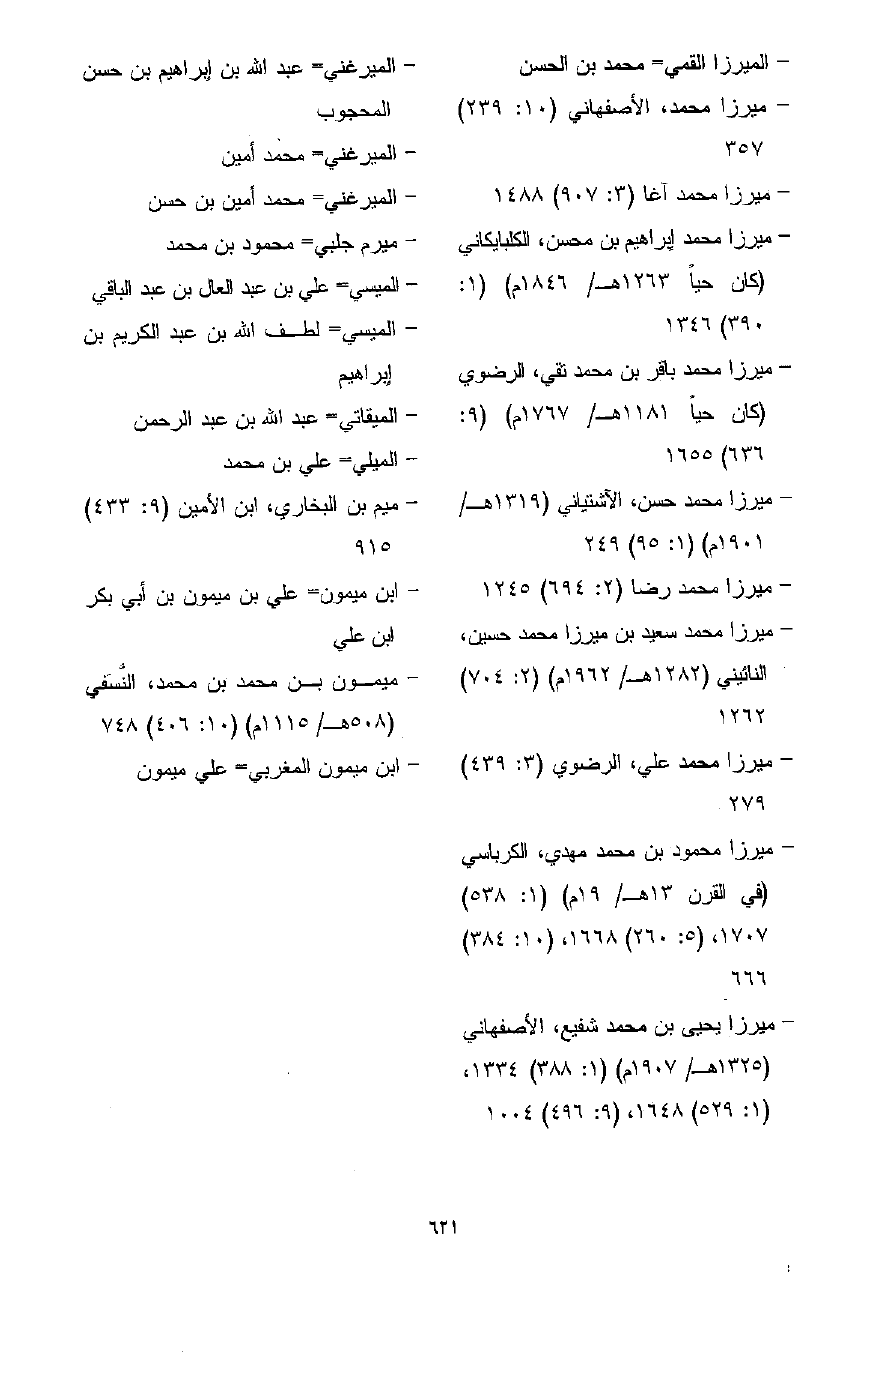 - الميرزا القمي= محمد بن الحسن
- ميرزا محمد، الأصفهاني (١٠: ٢٣٩)
٣٥٧
- ميرزا محمد آغا (٣: ٩٠٧) ١٤٨٨
- ميرزا محمد إبراهيم بن محسن، الكلبايكاني
(كان حياً ١٢٦٣هـ/ ١٨٤٦م) (١:
٣٩٠) ١٣٤٦
- ميرزا محمد باقر بن محمد تقي، الرضوي
(كان حياً ١١٨١هـ/ ١٧٦٧م) (٩:
٦٣٦) ١٦٥٥
- ميرزا محمد حسن، الآشتياني (١٣١٩هـ/
١٩٠١م) (١: ٩٥) ٢٤٩
- ميرزا محمد رضا (٢: ٦٩٤) ١٢٤٥
- ميرزا محمد سعيد بن ميرزا محمد حسين،
النائيني (١٢٨٢هـ/ ١٩٦٢م) (٢: ٧٠٤)
١٢٦٢
- ميرزا محمد علي، الرضوي (٣: ٤٣٩)
٢٧٩
- ميرزا محمود بن محمد مهدي، الكرباسي
(في القرن ١٣هـ/ ١٩م) (١: ٥٣٨)
١٧٠٧، (٥: ٢٦٠) ١٦٦٨، (١٠: ٣٨٤)
٦٦٦
- ميرزا يحيى بن محمد شفيع، الأصفهاني
(١٣٢٥هـ/ ١٩٠٧م) (١: ٣٨٨) ١٣٣٤،
(١: ٥٢٩) ١٦٤٨، (٩: ٤٩٦) ١٠٠٤
- الميرغني= عبد الله بن إبراهيم بن حسن
المحجوب
- الميرغني= محمد أمين
- الميرغني= محمد أمين بن حسن
- ميرم جلبي= محمود بن محمد
- الميسي= علي بن عبد العال بن عبد الباقي
- الميسي= لطف الله بن عبد الكريم بن
إبراهيم
- الميقاتي= عبد الله بن عبد الرحمن
- الميلي= علي بن محمد
- ميم بن البخاري، ابن الأمين (٩: ٤٣٣)
٩١٥
- ابن ميمون= علي بن ميمون بن أبي بكر
ابن علي
- ميمون بن محمد بن محمد، النَّسَفي
(٥٠٨هـ/ ١١١٥م) (١٠: ٤٠٦) ٧٤٨
- ابن ميمون المغربي= علي ميمون
٦٢١